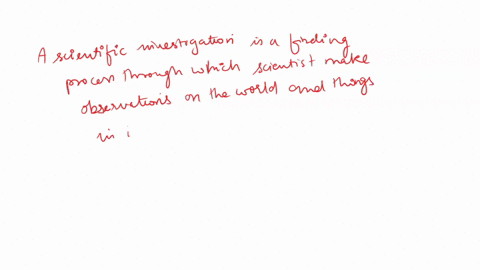 A scientific investigation is a finding
process through which scientist make
observations on the world and things
in i